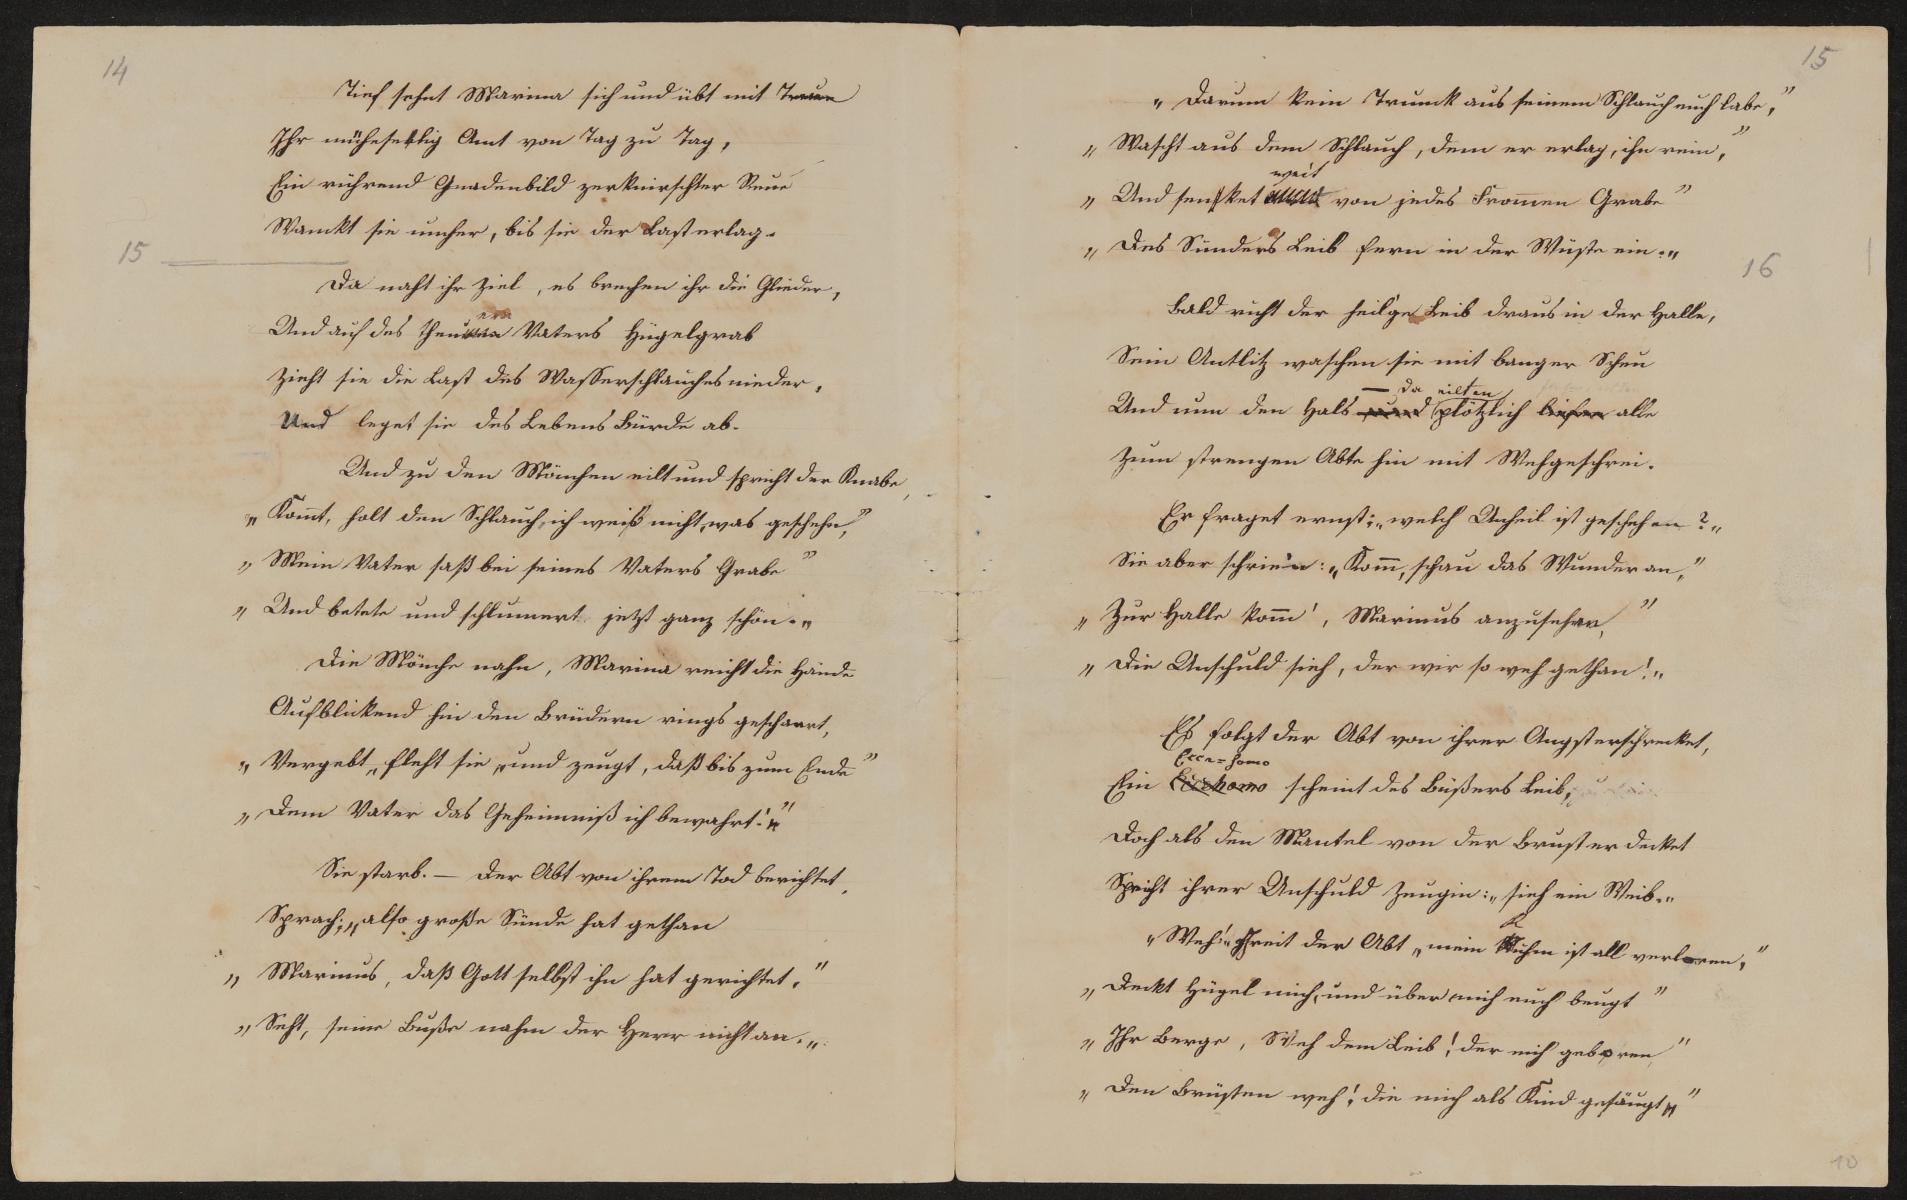 14
Tief sehnt Marina sich und übt mit Treue
Ihr mühesellig Amt von Tag zu Tag,
Ein rührend Gnadenbild zerknirschter Reue
Wanckt sie umher, bis sie der Last erlag.
15
Da naht ihr Ziel, es brechen ihr die Glieder,
Und auf des theuern Vaters Hügelgrab
Zieht sie die Last des Wasserschlauches nieder,
Und leget sie des Lebens Bürde ab.
Und zu den Mönchen eilt und spricht der Knabe,
„Kom̄t, holt den Schlauch, ich weiß nicht, was geschehn,”
„Mein Vater saß bei seines Vaters Grabe”
„Und betete und schlummert jetzt ganz schön.„
Die Mönche nahn, Marina reicht die Hände
Aufblickend hin den Brüdern rings geschaart,
„Vergebt„ fleht sie „und zeugt, daß bis zum Ende”
„Dem Vater das Geheimniß ich bewahrt!”
Sie starb. — Der Abt von ihrem Tod berichtet,
Sprach: „also große Sünde hat gethan
„Marinus, daß Gott selbst ihn hat gerichtet,”
„Seht, seine Buße nahm der Herr nicht an.„
15
„Darum kein Trunck aus seinem Schlauch euch labe,”
„Wascht aus dem Schlauch, dem er erlag, ihn rein,”
weit
„Und senket von jedes From̄en Grabe”
„Des Sünders Leib fern in der Wüste ein.„
16
Bald ruht der heilge Leib draus in der Halle,
Sein Antlitz waschen sie mit banger Scheu
— da eilten
Und nun den Hals und plötzlich liefen alle
Zum strengen Abte hin mit Wehgeschrei.
Er fraget ernst: „welch Unheil ist geschehen?„
Sie aber schrieen: „Kom̄, schau das Wunder an,”
„Zur Halle kom̄', Marinus anzusehen,”
„Die Unschuld sieh, der wir so weh gethan!„
Es folgt der Abt von ihrer Angst erschrecket,
Ecce=homo
Ein Eccehomo scheint des Büßers Leib,
Doch als den Mantel von der Brust er decket
Spricht ihrer Unschuld Zeugin: „sieh ein Weib.„
„Weh!„ schreit der Abt „mein Ruhm ist all verloren,”
„Deckt Hügel mich, und über mich euch beugt”
„Ihr Berge, Weh dem Leib! der mich geboren”
„Den Brüsten weh! die mich als Kind gesäugt”
10